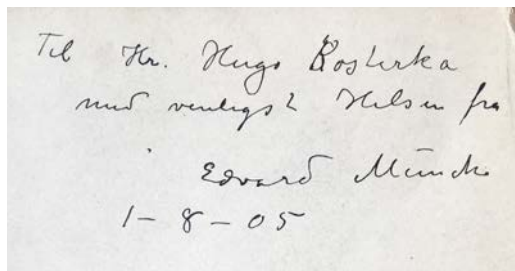 Til Hr. Hugo Kosterka
med venligst Hilsen fra
Edvard Munch
1-8-05